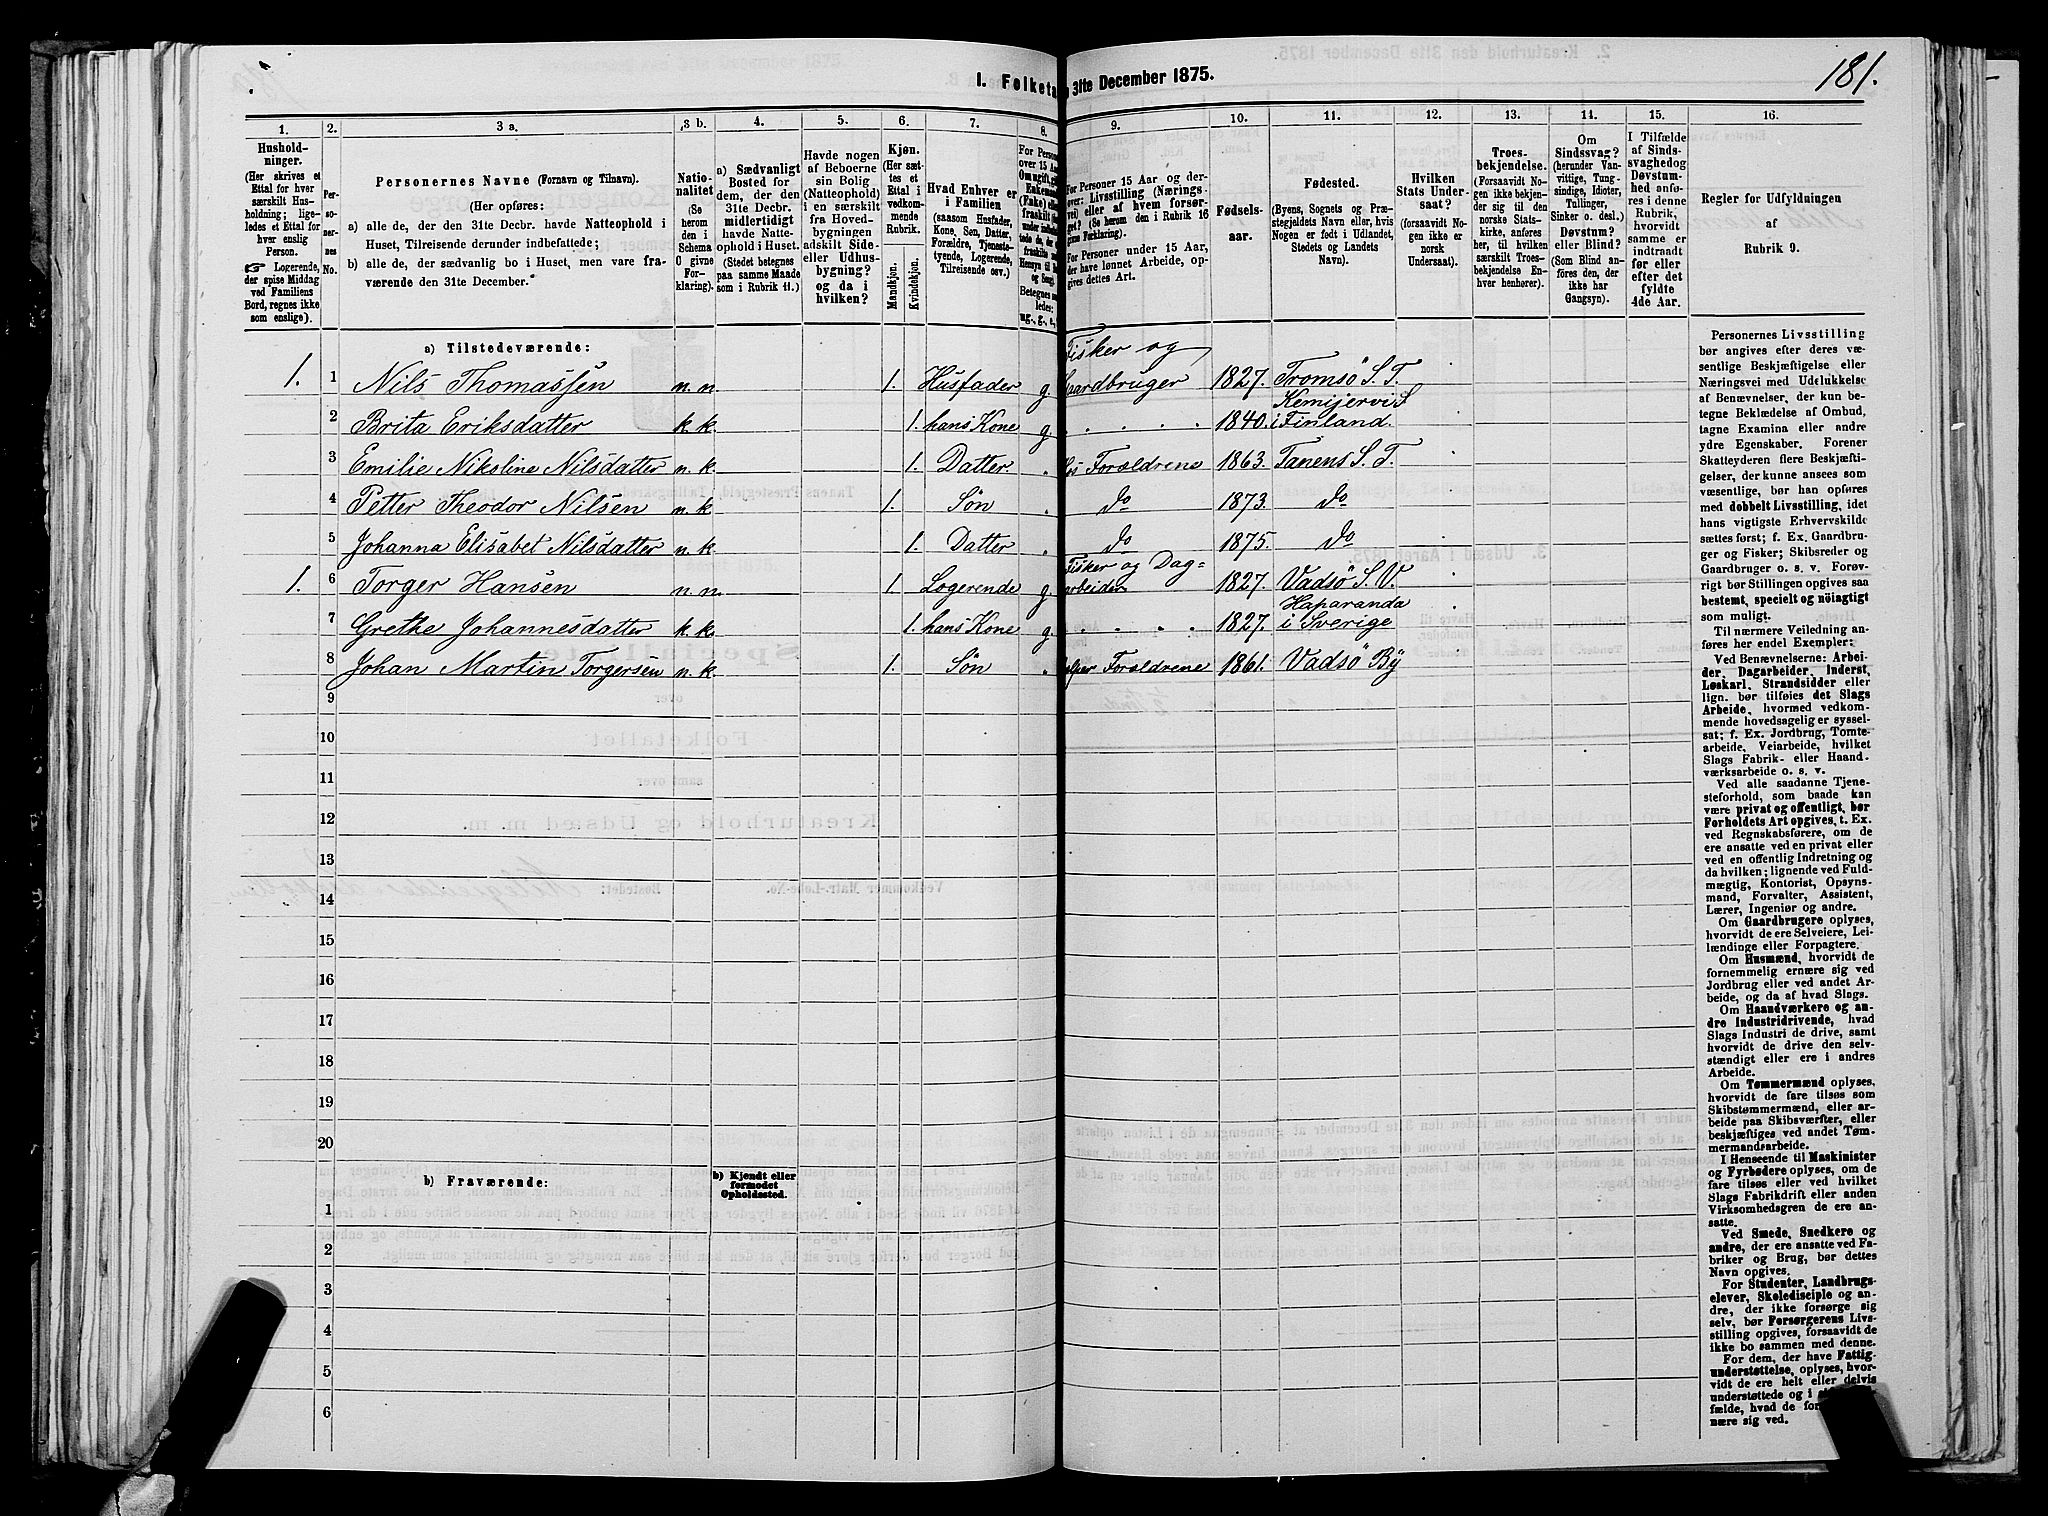 181.
1. Folketa
31te December 1875.
1. 2. 3 a. 3 b. 4. 5. 6. 7. 8. 9. 10. 11. 12. 13. 14. 15. 16.
Hushold-
ninger.
(Her skrives et
Ettal for hver
særskilt Hus-
holdning; lige-
ledes et Ettal
for hver enslig
Person.
☞ Logerende,
der spise Middag
ved Familiens
Bord, regnes ikke
som enslige).
Per-
so-
ner-
nes
No.
Personernes Navne (Fornavn og Tilnavn).
(Her opføres:
a) alle de, der den 31te Decbr. havde Natteophold i
Huset, Tilreisende derunder indbefattede;
b) alle de, der sædvanlig bo i Huset, men vare fra-
værende den 31te December.
Natio-
nalitet
(Se
herom
den i
Schema
C givne
For-
klaring).
a) Sædvanligt
Bosted for
dem, der den
31te Decbr.
midlertidigt
havde Natte-
ophold i Huset.
(Stedet betegnes
paa samme Maade
som i Rubrik 11.)
Havde nogen
af Beboerne
sin Bolig
(Natteophold)
i en særskilt
fra Hoved-
bygningen
adskilt Side-
eller Udhus-
bygning?
og da i
hvilken?
Kjøn.
(Her sæt-
tes et
Ettal i
vedkom-
mende
Rubrik.
Mandkjøn.
Kvindekjøn.
Hvad Enhver er
i Familien
(saasom Husfader,
Kone, Søn, Datter,
Forældre, Tjeneste-
tyende, Logerende,
Tilreisende osv.)
For Persone
over 15 Aar
Om ugift, gift
Enkema
(Enke) eller
fraskilt
For Personer 15 Aar og der-
over: Livsstilling (Nærings-
vei) eller af hvem forsør-
get? (Se herom den i Rubrik 16
givne Forklaring).
For Personer under 15 Aar,
der have lønnet Arbeide, op-
gives dettes Art.
Fødsels-
aar.
Fødested.
(Byens, Sognets og Præ-
stegjeldets Navn eller, hvis
Nogen er født i Udlandet,
Stedets og Landets
Navn).
Hvilken
Stats Under-
saat?
(forsaavidt No-
gen ikke er
norsk
Undersaat).
Troes-
bekjendelse.
(Forsaavidt No-
gen ikke bekjen-
der sig til den
norske Stats-
kirke, anføres
her, til hvilken
særskilt Troes-
bekjendelse En-
hver henhører).
Om
Sindssvag?
(herunder Van-
vittige, Tung-
sindige, Idioter,
Tullinger,
Sinker o. desl.)
Døvstum?
eller Blind?
(Som Blind an-
føres den, der
ikke har
Gangsyn).
I Tilfælde
af Sinds-
svaghed og
Døvstum-
hed anfø-
res i denne
Rubrik,
hvorvidt
samme er
indtraadt
før eller
efter det
fyldte
4de Aar.
Regler for Udfyldningen
af
Rubrik 9.
a) Tilstedeværende:
1. 1 Nils Thomassen n. n. 1. Husfader g. Fisker og Gaardbruger 1827. Tromsö S. T.
2 Brita Eriksdatter k. k. 1. hans Kone g. 1840. Kemijervi S i Finland.
3 Emilie Nikoline Nilsdatter n. k. 1. Datter Hos Forældrene 1863. Tanens S. T.
4 Petter Theodor Nilsen n. k. 1. Søn do 1873. do
5 Johanna Elisabet Nilsdatter n. k. 1. Datter do 1875. do
1. 6 Torger Hansen n. n. 1. Logerende g. Fisker og Dag=arbeider 1827. Vadsö S. V.
7 Grethe Johannesdatter k. k. 1. hans Kone g. 1827. Haparanda i Sverige
8 Johan Martin Torgersen n. k. 1. Søn Hjelper Forældrene 1861. Vadsö By
9
10
11
12
13
14
15
16
17
18
19
20
b) Fraværende:
b) Kjendt eller
formodet
Opholdssted.
1
2
3
4
5
6
Personernes Livsstilling
bør angives efter deres væ-
sentlige Beskjæftigelse eller
Næringsvei med Udelukkelse
af Benævnelser, der kun be-
tegne Beklædelse af Ombud,
tagne Examina eller andre
ydre Egenskaber. Forener
Skatteyderen flere Beskjæfti-
gelser, der kunne ansees som
væsentlige, bør han opføres
med dobbelt Livsstilling, idet
hans vigtigste Erhvervskilde
sættes først; f. Ex. Gaardbru-
ger og Fisker; Skibsreder og
Gaardbruger o. s. v. Forøv-
rigt bør Stillingen opgives saa
bestemt, specielt og nöiagtigt
som muligt.
Til nærmere Veiledning an-
føres her endel Exempler:
Ved Benævnelserne: Arbei-
der, Dagarbeider, Inderst,
Løskarl, Strandsidder eller
lign. bør tilføies det Slags
Arbeide, hvormed vedkom-
mende hovedsagelig er syssel-
sat; f. Ex. Jordbrug, Tomte-
arbeide, Veiarbeide, hvilket
Slags Fabrik- eller Haand-
værksarbeide o. s. v.
Ved alle saadanne Tjene-
steforhold, som baade kan
være privat og offentligt, bør
Forholdets Art opgives, t. Ex.
ved Regnskabsførere, om de
ere ansatte ved en privat eller
ved en offentlig Indretning og
da hvilken; lignende ved Fuld-
mægtig, Kontorist, Opsyns-
mand, Forvalter, Assistent,
Lærer, Ingeniør og andre.
Om Gaardbrugere oplyses,
hvorvidt de ere Selveiere, Lei-
lændinge eller Forpagtere.
Om Husmænd, hvorvidt de
fornemmelig ernære sig ved
Jordbrug eller ved andet Ar-
beide, og da af hvad Slags.
Om Haandværkere og an-
dre Industridrivende, hvad
Slags Industri de drive, samt
hvorvidt de drive den selv-
stændigt eller ere i andres
Arbeide.
Om Tømmermænd oplyses,
hvorvidt de fare tilsøs som
Skibstømmermænd, eller ar-
beide paa Skibsværfter, eller
beskjæftiges ved andet Tøm-
mermandsarbeide.
I Henseende til Maskinister
og Fyrbødere oplyses, om de
fare tilsøs eller ved hvilket
Slags Fabrikdrift eller anden
Virksomhedsgren de ere an-
satte.
Ved Smede, Snedkere og
andre, der ere ansatte ved Fa-
briker og Brug, bør dettes
Navn opgives.
For Studenter, Landbrugs-
elever, Skoledisciple og an-
dre, der ikke forsørge sig
selv, bør Forsørgerens Livs-
stilling opgives, forsaavidt de
ikke bo sammen med denne.
For dem, der have Fattig-
understøttelse, oplyses, hvor-
vidt de ere helt eller delvis
understøttede og i
fælde, hvad de
nære sig ved.